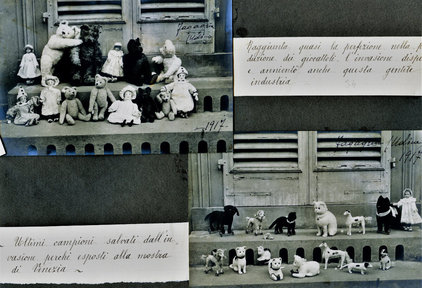 1917.
Raggiunta quasi la perfezione nella p
duzione dei giocattoli l'invasione dispe
e annientò anche questa gentile
industria
1917
~ Ultimi campioni salvati dall'in_
vasione perchè esposti alla mostra
di Venezia ~